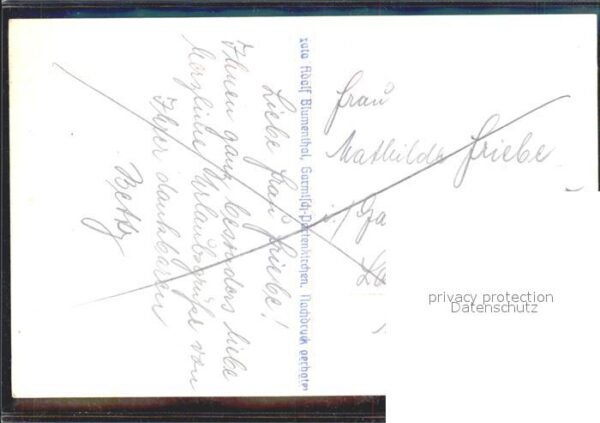 Liebe Frau Friebe!
Ihnen ganz besonders liebe
herzliche Urlaubsgrüße von
Ihrer dankbaren
Betty
Foto Adolf Blumenthal, Garmisch-Partenkirchen, Nachdruck verboten
Frau
Mathilde Friebe
i./
privacy protection
Datenschutz